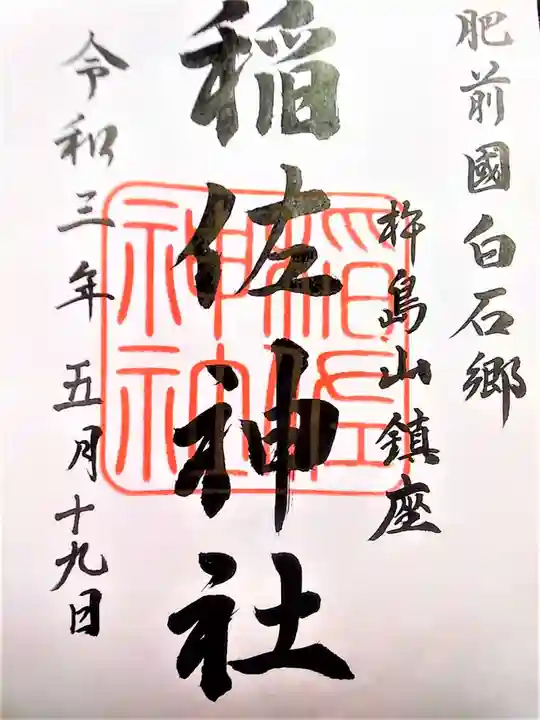 肥前國白石郷
杵島山鎮座
稲佐神社
令和三年五月十九日
稲佐
神社